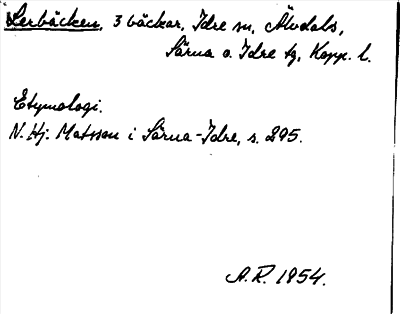 Lerbäcken, 3 bäckar, Idre sn, Älvdals,
Särna o. Idre tg, Kopp. l.
Etymologi.
N. Hj. Matsson i Särna-Idre, s. 295.
A.R. 1954.